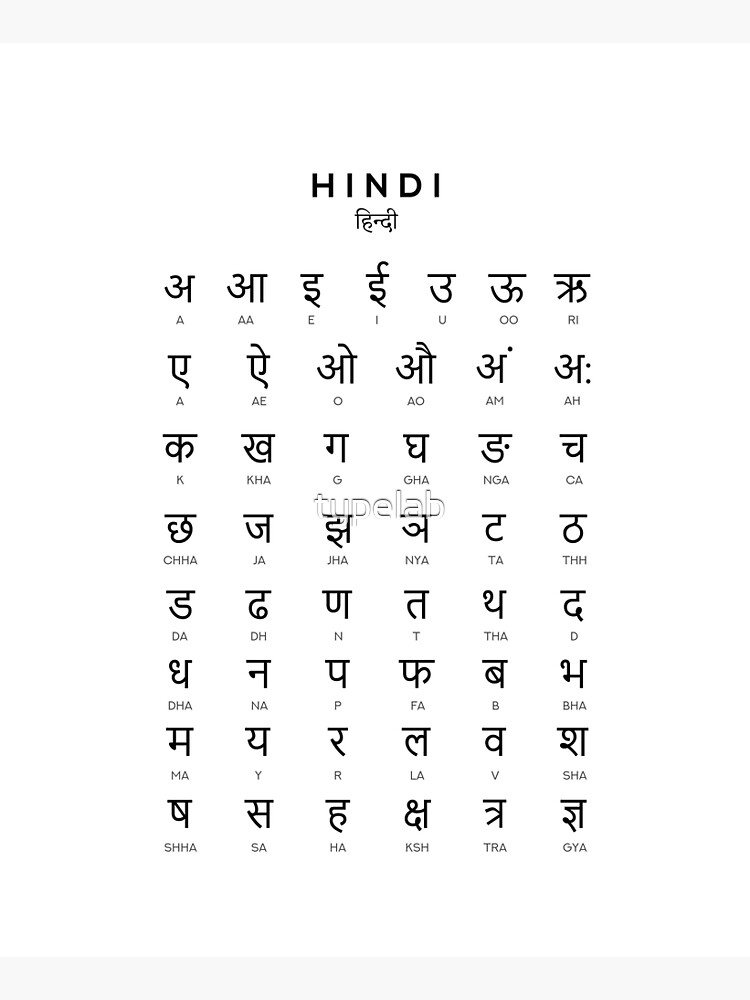 HINDI
हिन्दी
अ आ इ ई उ ऊ ऋ
A AA E I U OO RI
ए ऐ ओ औ अं अः
A AE O AO AM AH
क ख ग घ ङ च
K KHA G GHA NGA CA
typelab
छ ज झ ञ ट ठ
CHHA JA JHA NYA TA THH
ड ढ ण त थ द
DA DH N T THA D
ध न प फ ब भ
DHA NA P FA B BHA
म य र ल व श
MA Y R LA V SHA
ष स ह क्ष त्र ज्ञ
SHHA SA HA KSH TRA GYA